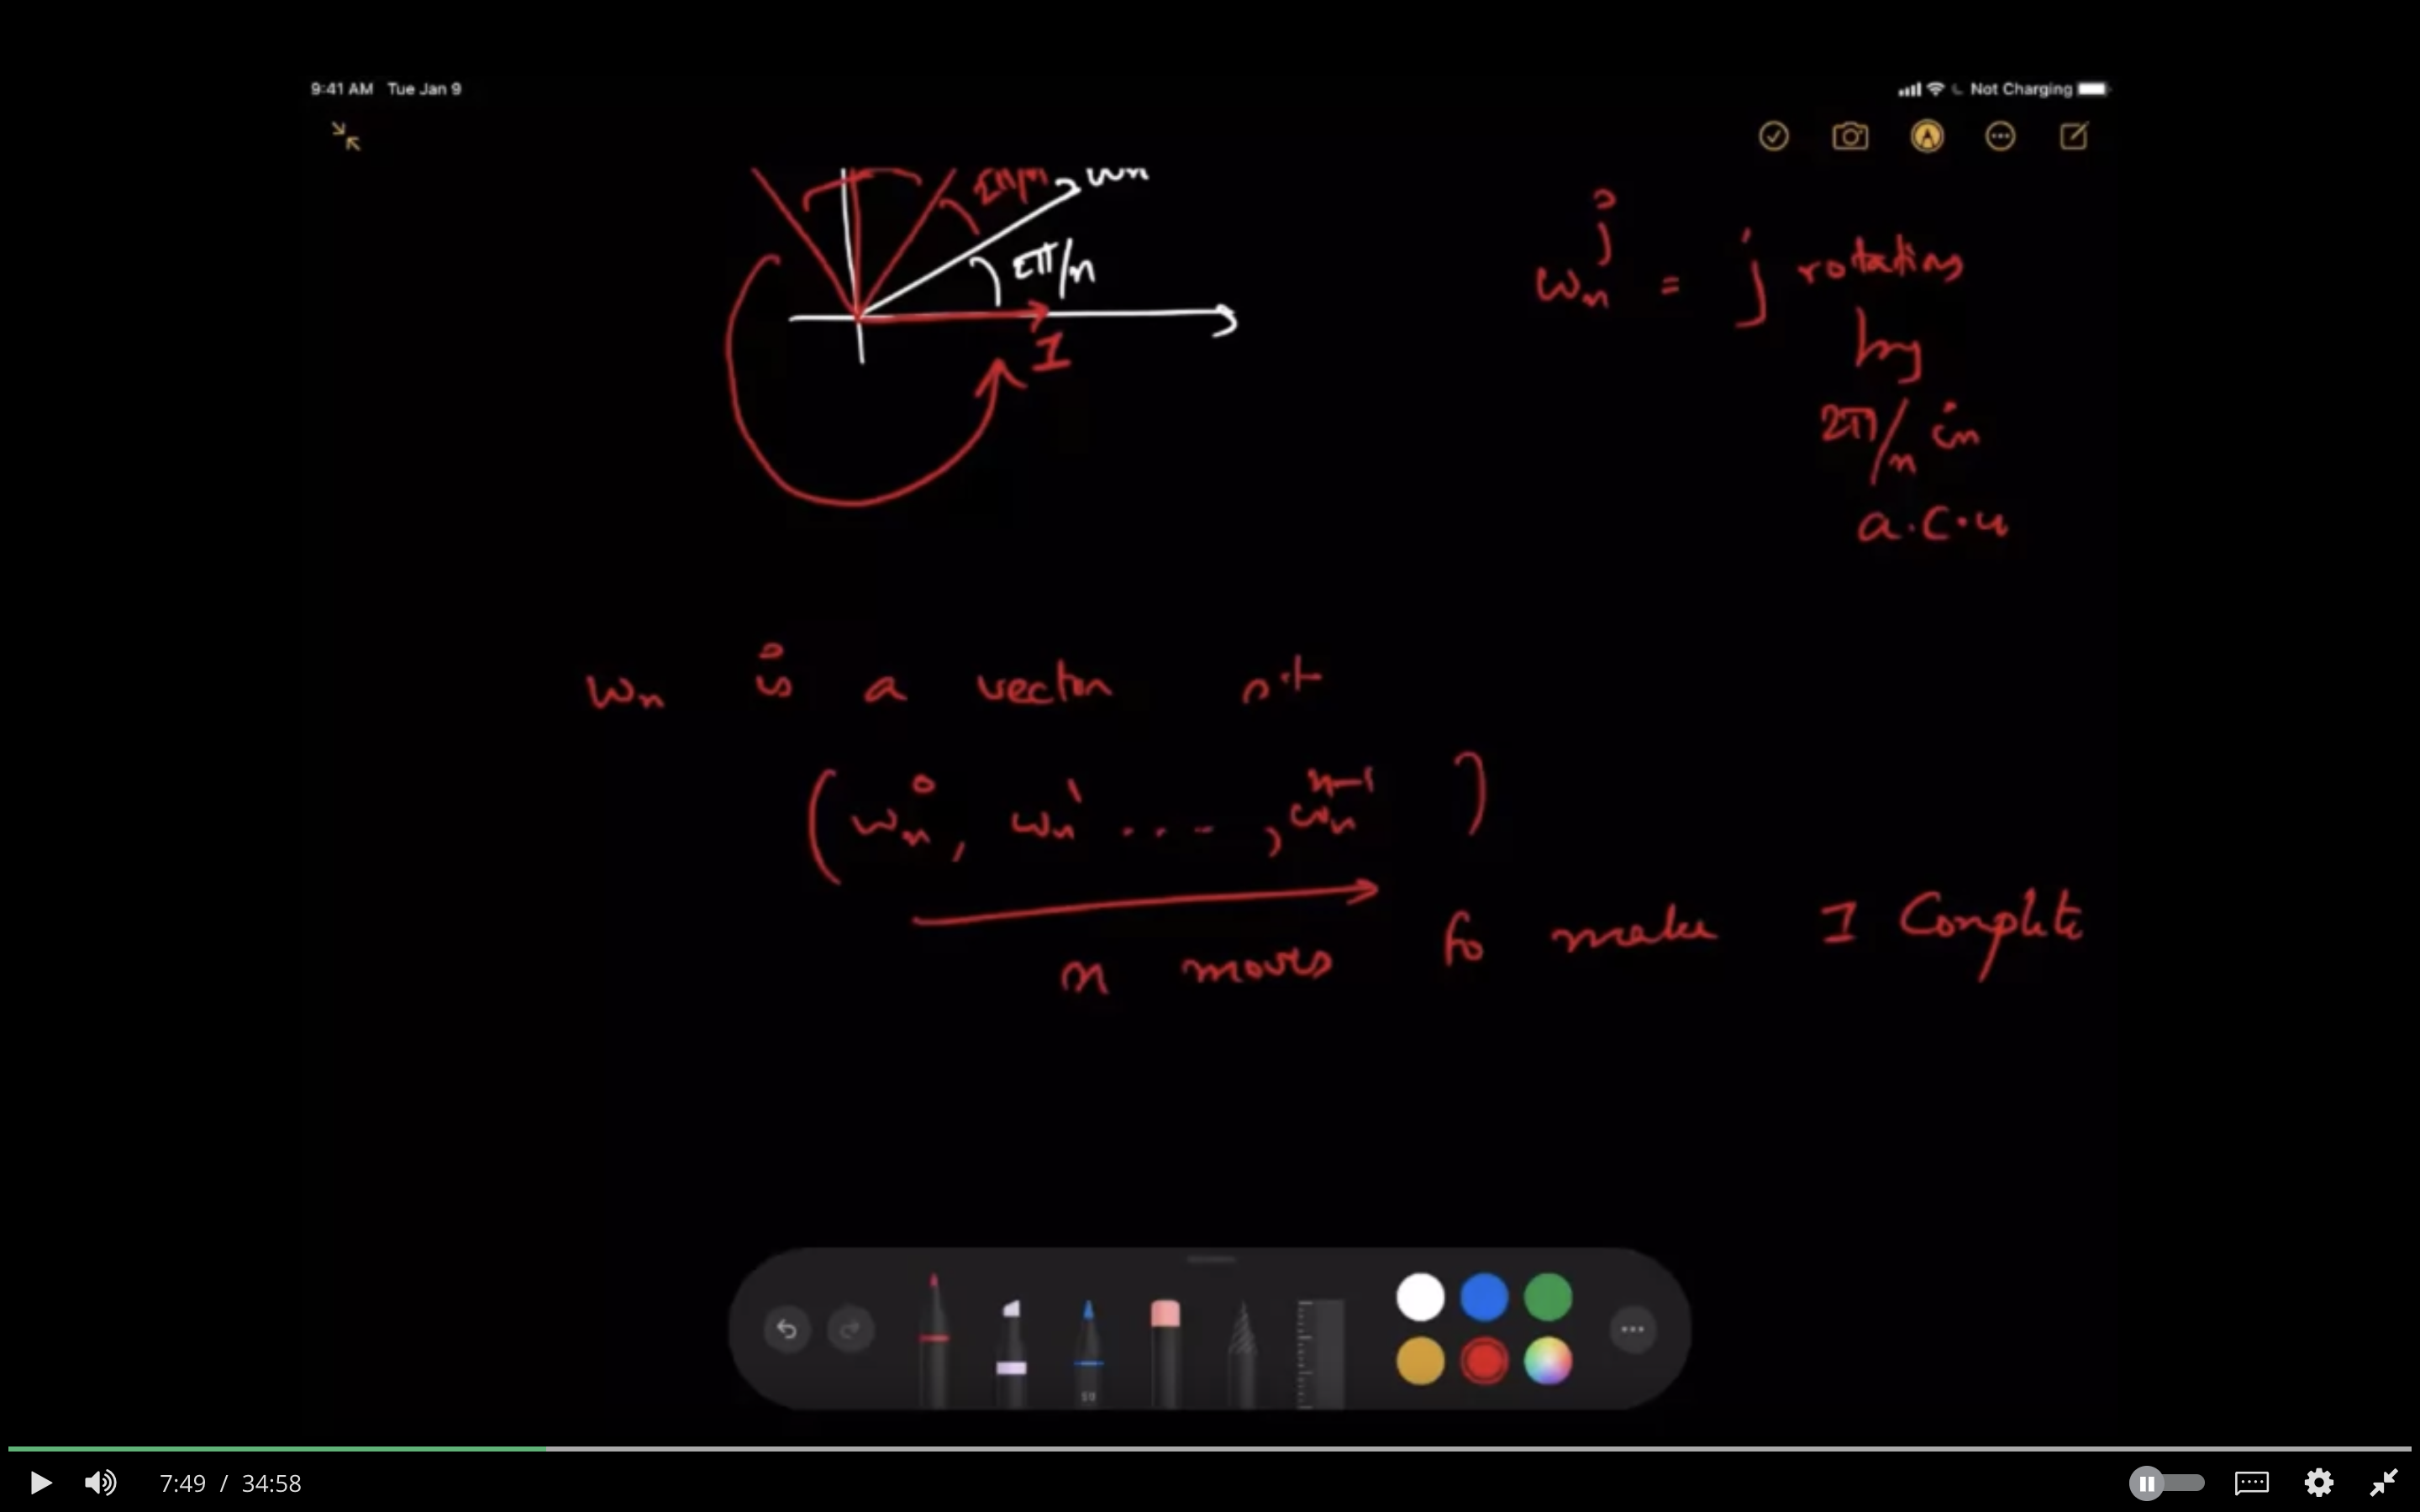 9:41 AM Tue Jan 9
Not Charging
2π/n
wn
2π/n
I
wₙʲ = j rotating
by
2π/n in
a.c.w
wₙ is a vector st
(wₙ⁰, wₙ¹ ...., wₙⁿ⁻¹)
n moves to make 1 Complete
50
7:49 / 34:58